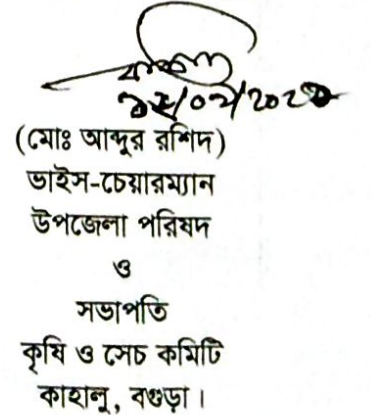 (মোঃ আব্দুর রশিদ)
ভাইস-চেয়ারম্যান
উপজেলা পরিষদ
ও
সভাপতি
কৃষি ও সেচ কমিটি
কাহালু, বগুড়া।